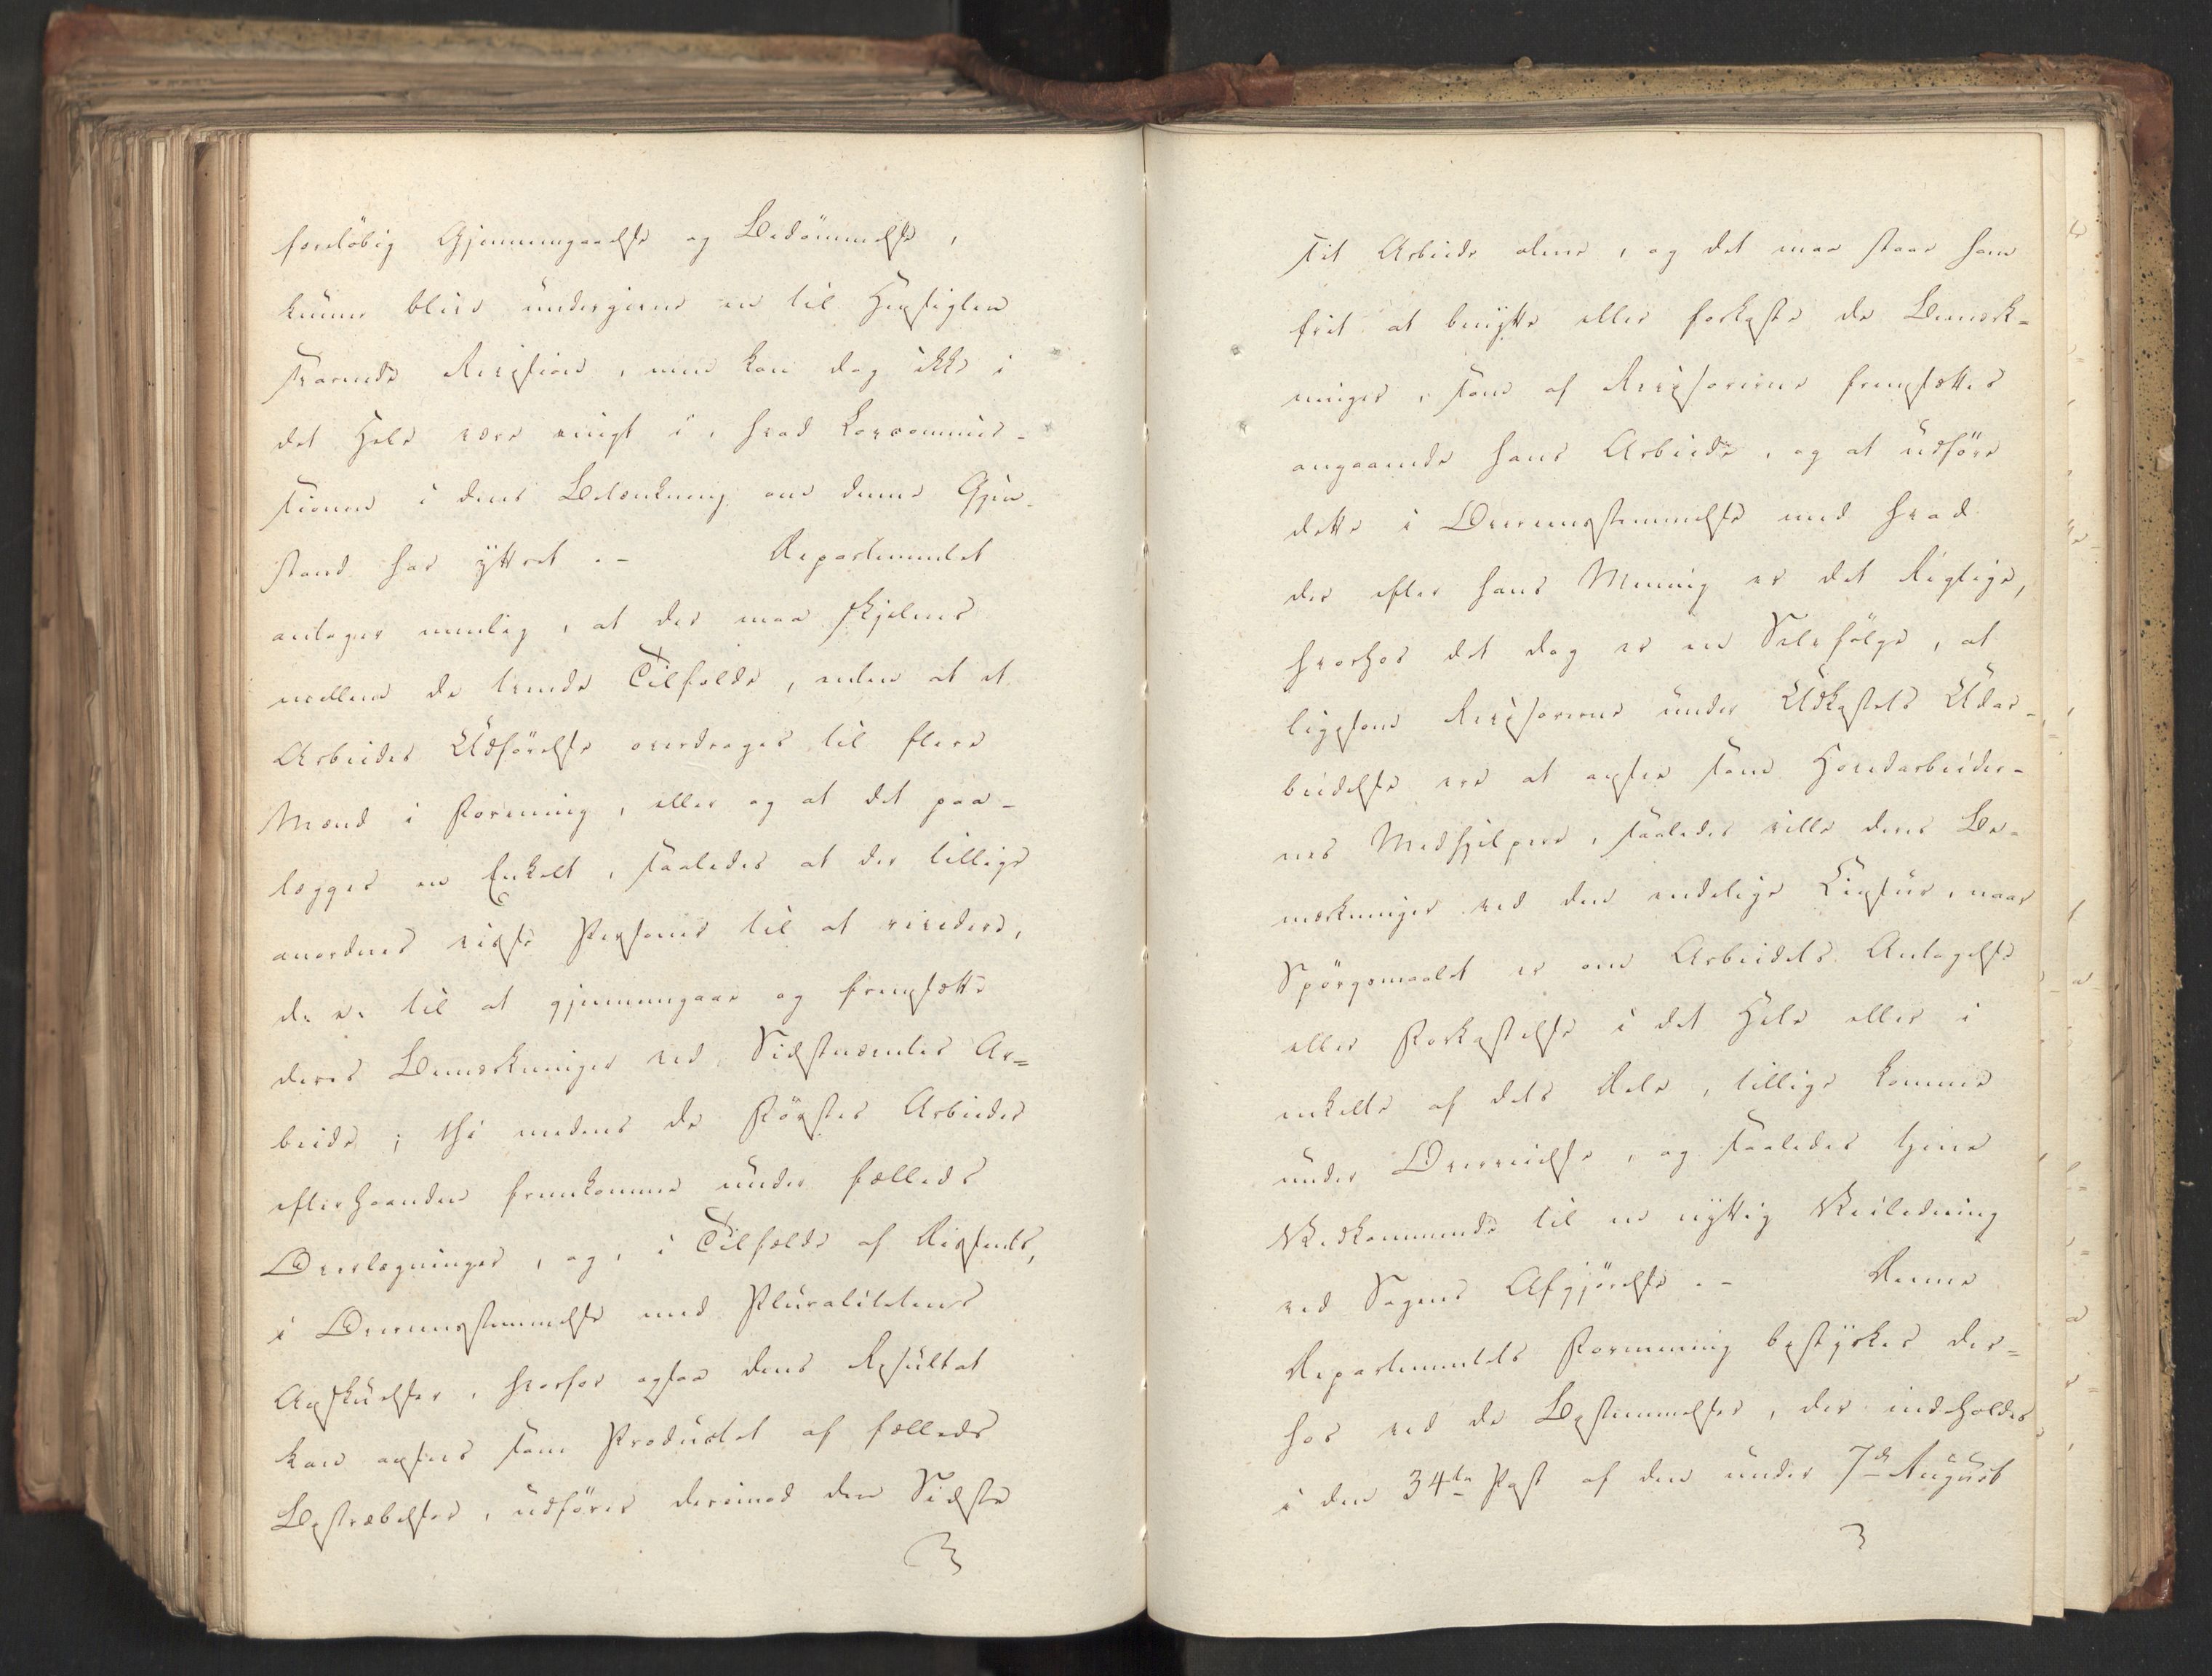 foreløbig Gjennemgaaelse og Bedömmelse,
kunne blive undergivne en til Hensigten
svarende Revision, men kan dog ikke i
det Hele være enigt i, hvad Lovcommis-
sionen i dens Betænkning om denne Gjen-
stand har yttret. - Departementet
antager nemlig, at der maa skjelnes
mellem de tvende Tilfælde, enten at et
Arbeides Udförelse overdrages til flere
Mænd i Forening, eller og at det paa-
lægges en Enkelt, saaledes at der tillige
anordnes visse Personer til at revidere,
d. e. til at gjennemgaae og fremsætte
deres Bemærkninger ved Sidstnævntes Ar=
beide; thi medens de Förstes Arbeider
efterhaanden fremkomme under fælleds
Overlægninger, og, i Tilfælde af Dissents,
i Overeensstemmelse med Pluralitetens
Anskuelser, hvorfor ogsaa dens Resultat
kan ansees som Productet af fælleds
Bestræbelser, udförer derimod den Sidste
sit Arbeide alene, og det maa staae ham
frit at benytte eller forkaste de Bemærk-
ninger, som af Revisorerne fremsættes
angaaende hans Arbeide, og at udföre
dette i Overeensstemmelse med hvad
der efter hans Mening er det Rigtige,
hvorhos det dog er en Selvfölge, at
ligesom Revisorerne under Udkastets Udar-
beidelse ere at ansee som Hovedarbeider-
nes Medhjelpere, saaledes ville deres Be-
mærkninger ved den endelige Censur, naar
Spörgsmaalet er om Arbeidets Antagelse
eller Forkastelse i det Hele eller i
enkelte af dets Dele, tillige komme
under Overveielse, og saaledes tjene
Vedkommende til en nyttig Veiledning
ved Sagens Afgjörelse. - Denne
Departementets Formening bestyrkes der=
hos ved de Bestemmelser, der indeholdes
i den 34te Post af den under 7de August